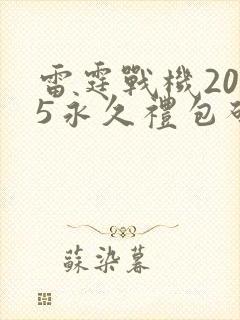 雷霆戰機20
5永久禮包
蘇染暮